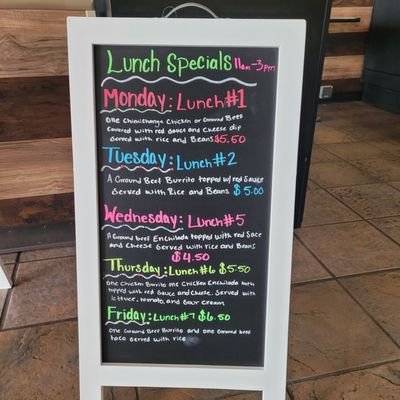 Lunch Specials 11am-3pm
Monday: Lunch #1
One Chimichanga Chicken or Ground Beef
covered with red sauce and cheese dip
served with rice and Beans $5.50
Tuesday: Lunch #2
A Ground Beef Burrito topped w/ red Sauce
Served with Rice and Beans $5.00
Wednesday: Lunch #5
A Ground beef Enchilada topped with red Sace
and cheese Served with rice and Beans
$4.50
Thursday: Lunch #6 $5.50
One Chicken Burrito One Chicken Enchilada both
topped with red Sauce and cheese. Served with
lettuce, tomato, and sour cream
Friday: Lunch #7 $6.50
One Ground Beef Burrito and One Ground beef
taco served with rice